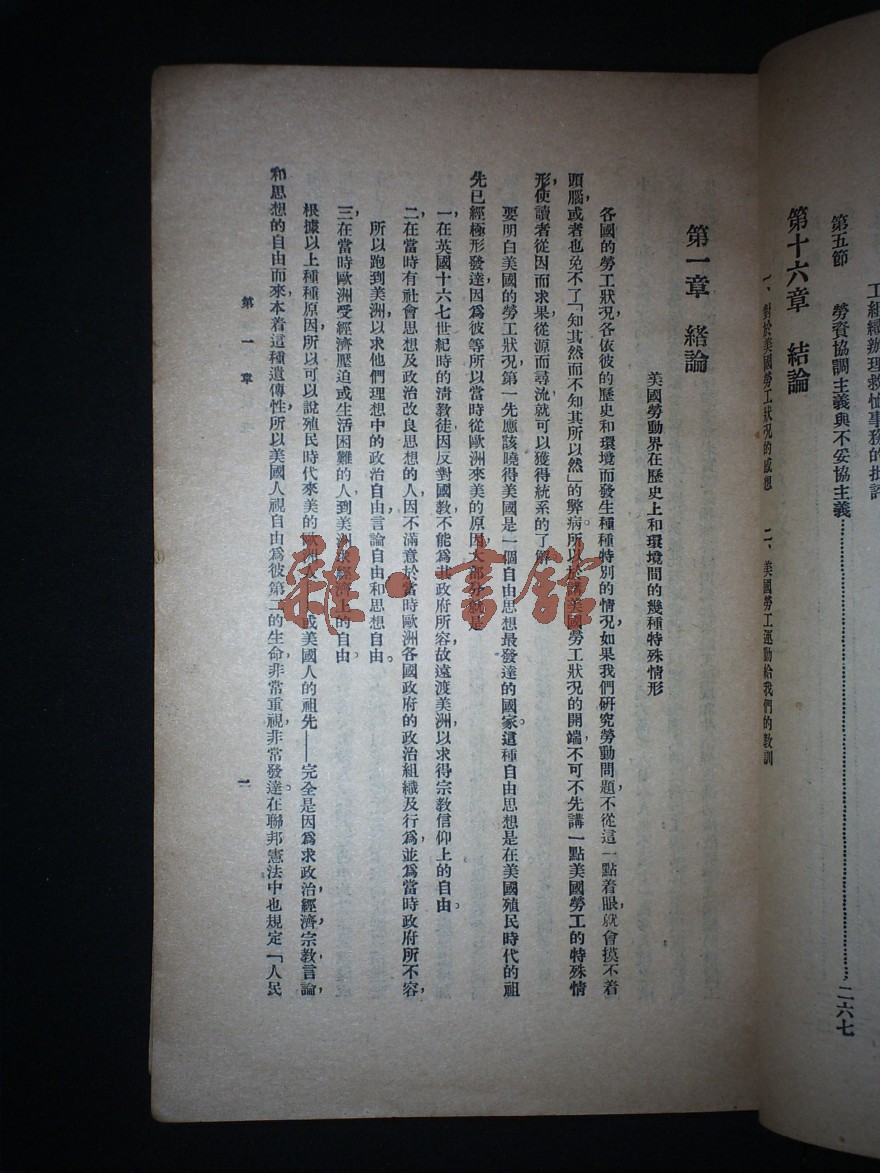 工組織辦理救恤事務的批評
第五節　勞資協調主義與不妥協主義……二六七
第十六章　結論
一、對於美國勞工狀況的感想　二、美國勞工運動給我們的教訓
第一章　緒論
美國勞動界在歷史上和環境間的幾種特殊情形
各國的勞工狀況，各依彼的歷史和環境而發生種種特別的情況，如果我們研究勞動問題，不從這一點着眼，就會摸不着
頭腦，或者也免不了「知其然而不知其所以然」的弊病，所以於講美國勞工狀況的開端，不可不先講一點美國勞工的特殊情
形，使讀者從因而求果，從源而尋流，就可以獲得統系的了解。
要明白美國的勞工狀況，第一先應該曉得美國是一個自由思想最發達的國家。這種自由思想是在美國殖民時代的祖
先已經極形發達，因爲彼等所以當時從歐洲來美的原因，大部分就是
一、在英國十六七世紀時的清教徒，因反對國教，不能爲其政府所容，故遠渡美洲，以求得宗教信仰上的自由。
二、在當時有社會思想及政治改良思想的人，因不滿意於當時歐洲各國政府的政治組織及行爲，並爲當時政府所不容，
所以跑到美洲，以求他們理想中的政治自由，言論自由和思想自由。
三、在當時歐洲受經濟壓迫或生活困難的人，到美洲求經濟上的自由。
根據以上種種原因，所以可以說殖民時代來美的歐洲人——或美國人的祖先——完全是因爲求政治，經濟，宗教，言論，
和思想的自由而來，本着這種遺傳性，所以美國人視自由爲彼第二的生命，非常重視，非常發達。在聯邦憲法中也規定「人民
第一章
一
雜·書館